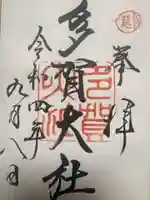 奉拝
多賀大社
令和四年
九月八日